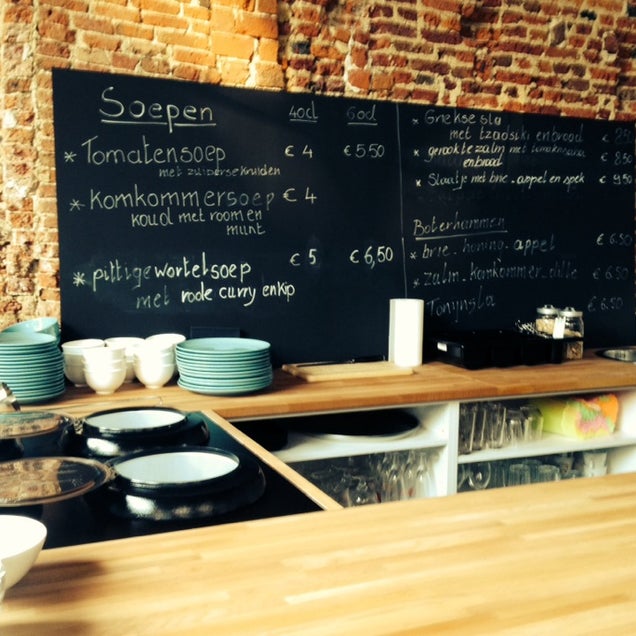 Soepen 40cl 60cl
* Tomatensoep € 4 € 5.50
met zuiderse kruiden
* Komkommersoep € 4
koud met room en
munt
* pittige wortelsoep € 5 € 6,50
met rode curry en kip
* Griekse sla
met tzadsiki en brood €
* gerookte zalm met tomatensalsa € 8.50
en brood
* Slaatje met brie - appel en spek € 9.50
Boterhammen
* brie - honing - appel € 6.50
* zalm - komkommer - dille € 6.50
Tonijnsla € 6.50